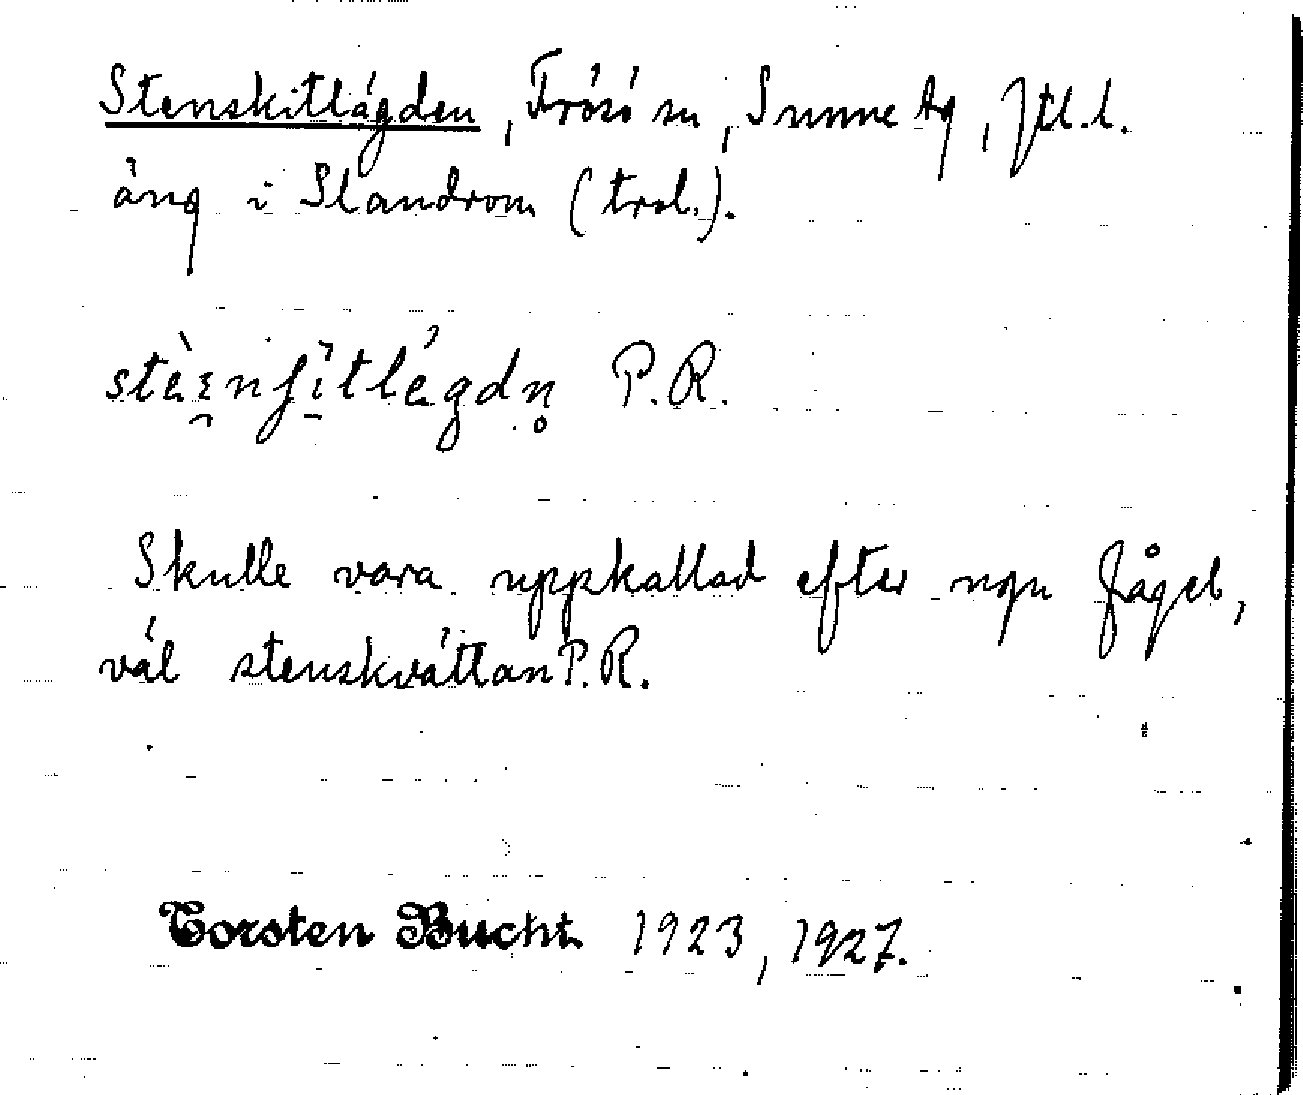 Stenskitlägden, Frösö sn, Sunne tg, Jtl.l.
äng i Slandrom (trol.).
P.R.
Skulle vara uppkallad efter ngn fågel,
väl stenskvättan P.R.
Torsten Bucht 1923, 1927.